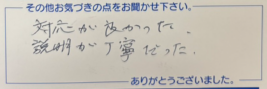 その他お気づきの点をお聞かせ下さい。
対応が良かった.
説明が丁寧だった.
ありがとうございました。